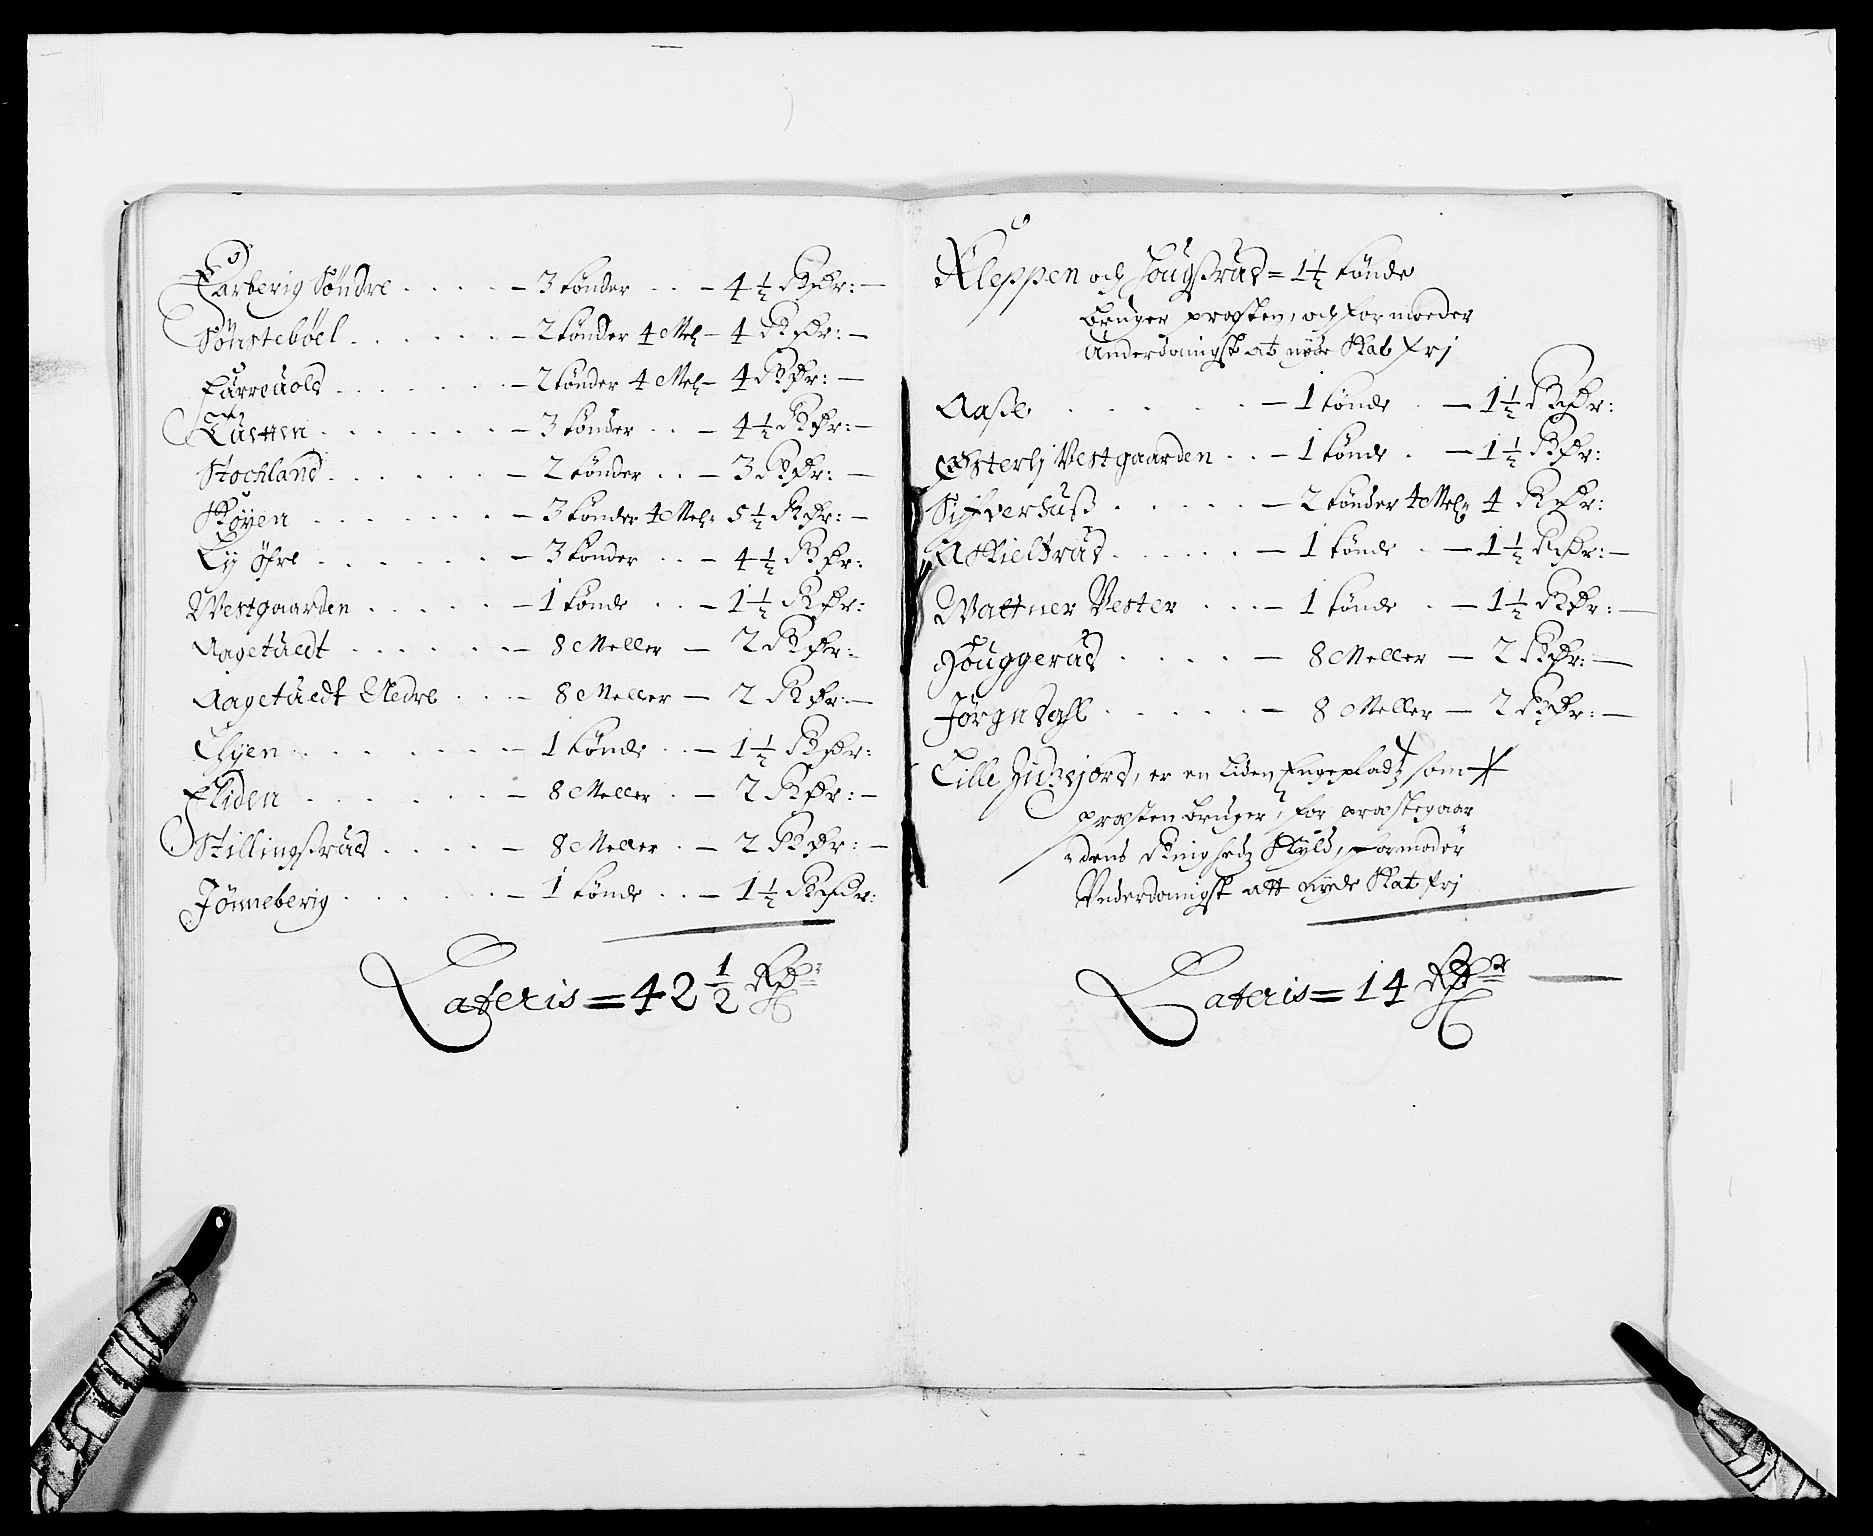 Tarberig Söndre . . . . . — 3 tönder . . — 4 1/2 Rdr: —
Sönsteböel . . . . . . — 2 tönder 4 Mel — 4 Rdr: —
Furreuold . . . . . . — 2 tönder 4 Mel — 4 Rdr: —
. . . . . . . — 3 tönder . . — 4 1/2 Rdr: —
Stochland . . . . . . — 2 tönder . . — 3 Rdr: —
Röyen . . . . . . — 3 tönder 4 Mel: 5 1/2 Rdr: —
Ly öfre . . . . . . — 3 tönder . . — 4 1/2 Rdr:
Westgaarden . . . . . — 1 tönde . . — 1 1/2 Rdr:
Aagetuedt . . . . . — 8 Meller — 2 Rdr:
Aagetuedt Nedre . . . — 8 Meller — 2 Rdr: —
. . . . . . . — 1 tönde . . — 1 1/2 Rdr:
Eliden . . . . . . — 8 Meller . — 2 Rdr: —
Stillingßrud . . . . — 8 Meller . — 2 Rdr: —
Jönneberig . . . . . — 1 tönde . . — 1 1/2 Rdr:
Lateris = 42 1/2 Rdr
Kleppen och Hougßrud = 1 1/2 tönde
bruger præsten, och formoeder
Underdanigst at nyde Skat frj
Aaße . . . . . — 1 tönde . — 1 1/2 Rdr:
Österlj Vestgaarden . . — 1 tönde . — 1 1/2 Rdr:
Siffverhuß . . . . . — 2 tönder 4 Mel 4 Rdr:
Askieldrud . . . . . — 1 tönde . — 1 1/2 Rdr: —
Wattner Vester . . . — 1 tönde . — 1 1/2 Rdr: —
Houggerud . . . . — 8 Meller — 2 Rdr: —
Jörgndahl . . . . . — 8 Meller — 2 Rdr: —
Lille er en liden Engepladtz som
præsten bruger, for præstegaar
dens Ringhedtz Skyld, formoder
Underdanigst att nyde Skat frj
Lateris = 14 Rdr